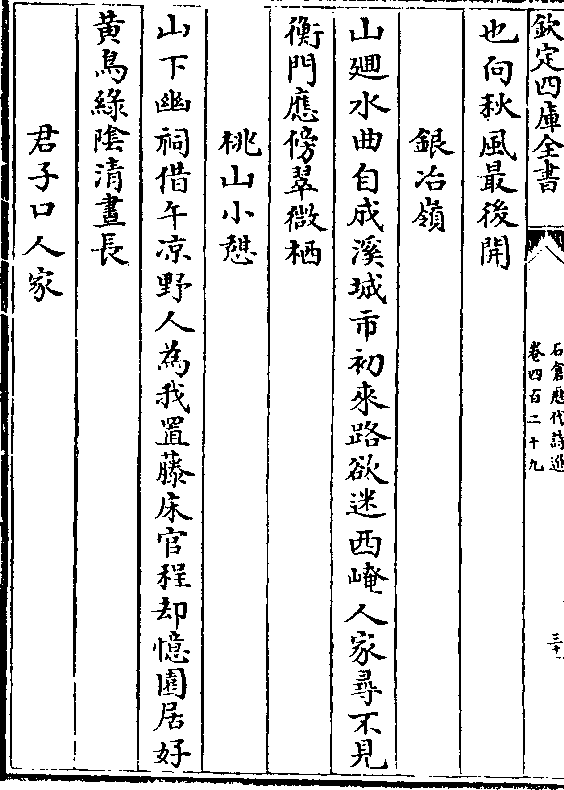 欽定四庫全書
石倉歷代詩選
卷四百二十九
三十
也向秋風最後開
銀冶嶺
山廻水曲自成溪城市初來路欲迷西崦人家尋不見
衡門應傍翠微栖
桃山小憇
山下幽祠借午凉野人為我置藤床官程却憶園居好
黃鳥綠陰清晝長
君子口人家